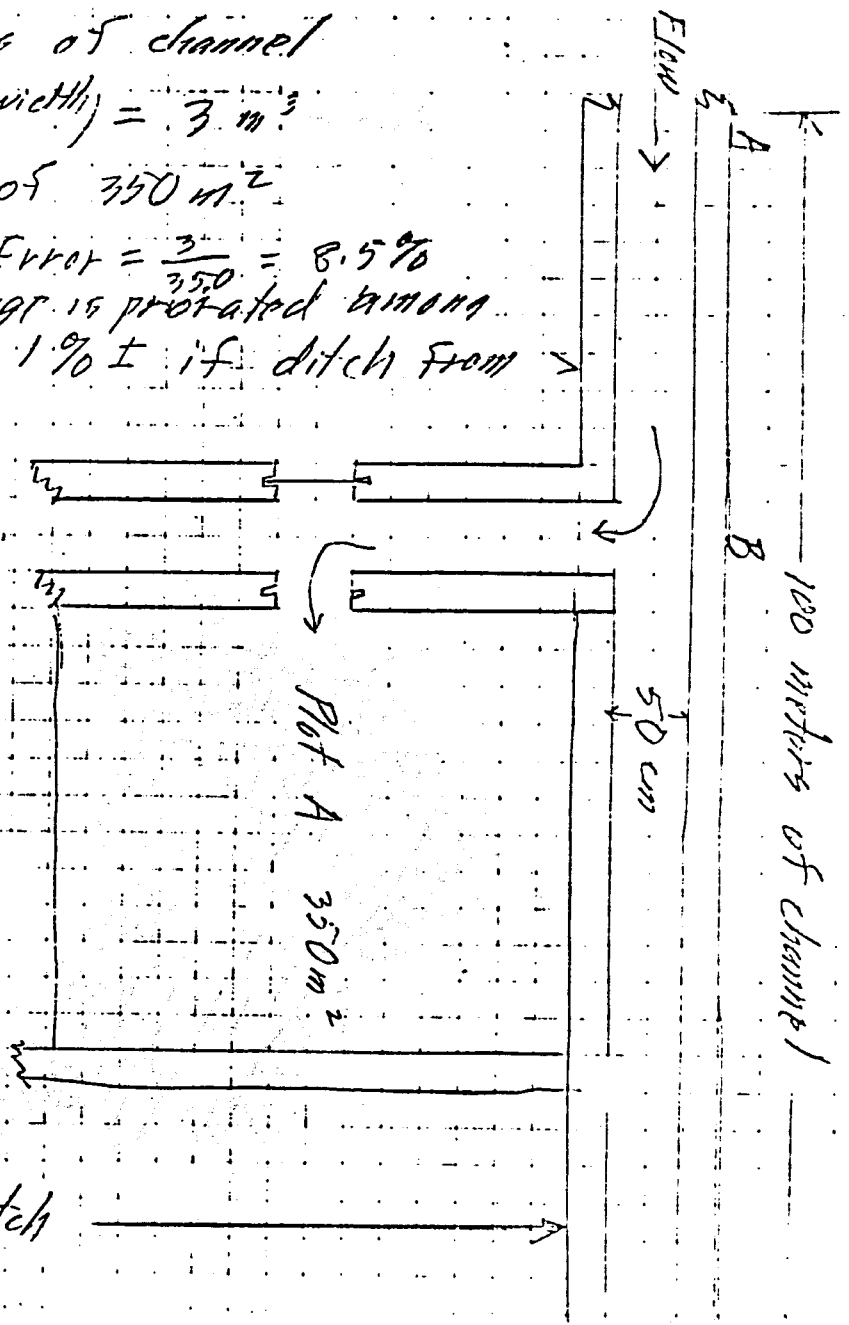 of channel
width) = 3 m³
of 350 m²
Error = 3/350 = 8.5%
is prorated among
1% ± if ditch from
Flow
A
B
100 meters of channel
50 cm
Plot A 350 m²